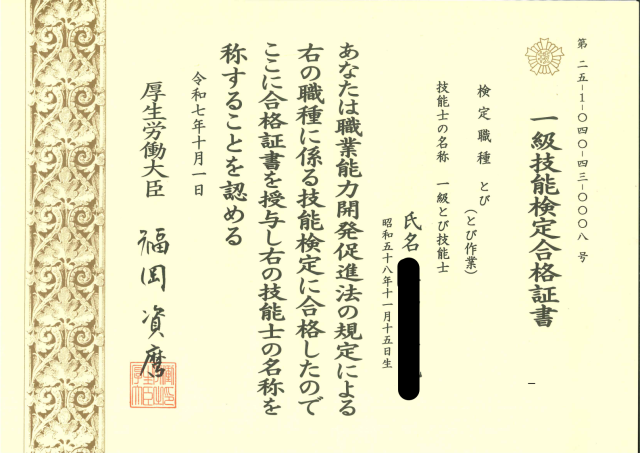 第 二五-1-〇四〇-四三-〇〇〇八 号
一級技能検定合格証書
検定職種 とび
(とび作業)
技能士の名称 一級とび技能士
氏名
昭和五十八年十一月十五日生
あなたは職業能力開発促進法の規定による
右の職種に係る技能検定に合格したので
ここに合格証書を授与し右の技能士の名称を
称することを認める
令和七年十月一日
厚生労働大臣 福岡資麿